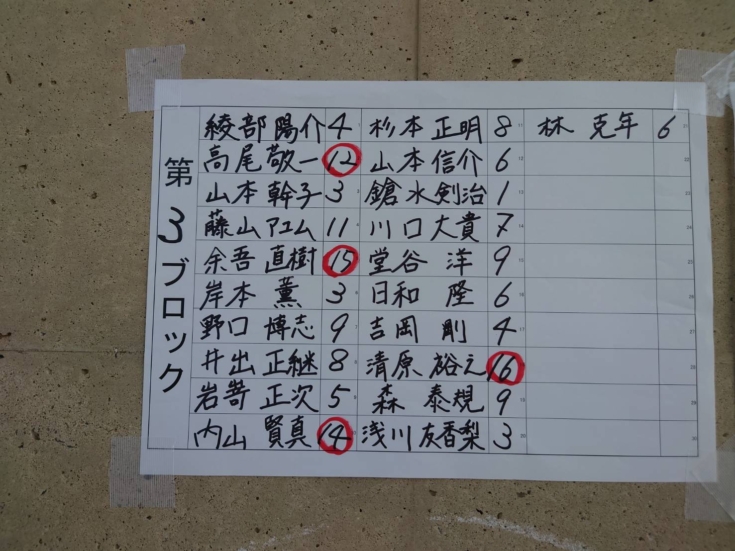 第3ブロック
綾部 陽介 4
高尾 敬一 12
山本 幹子 3
藤山 アエム 11
余吾 直樹 15
岸本 薫 3
野口 博志 9
井出 正継 8
岩嵜 正次 5
内山 賢真 14
杉本 正明 8
山本 信介 6
鎗水 剣治 1
川口 大貴 7
堂谷 洋 9
日和 隆 6
吉岡 剛 4
清原 裕之 16
森 泰規 9
浅川 友香梨 3
林 克年 6